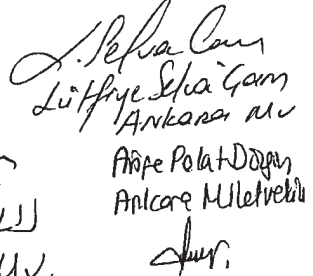 L. Selva Çam
Lütfiye Selva Çam
Ankara Mv
Ayşe Polat Düzgün
Ankara Milletvekili